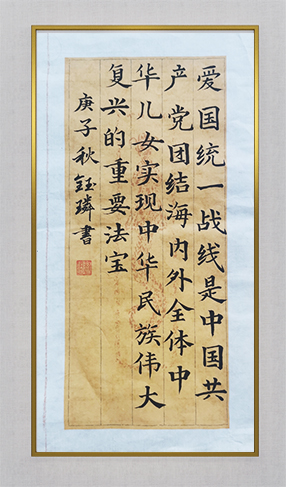 爱国统一战线是中国共
产党团结海内外全体中
华儿女实现中华民族伟大
复兴的重要法宝
庚子秋钰璘書